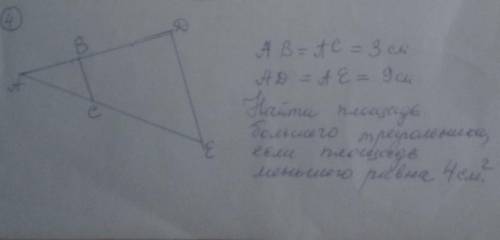 4
A
B
C
D
E
AB = AC = 3 см
AD = AE = 9 см
Найти площадь
большего треугольника,
если площадь
меньшего равна 4 см²